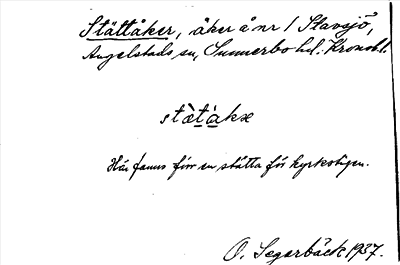 Stättåker, åker å nr 1 Slavsjö,
Angelstads sn, Sunnerbo hd. Kronobl.
stæ̀tàkæ
Här fanns förr en stätta för kyrkostigen.
O. Segerbäck 1937.